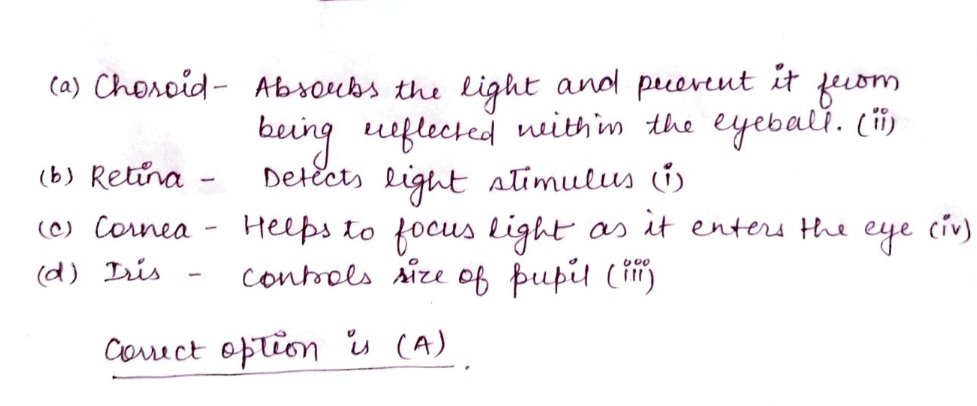 (a) Choroid - Absorbs the light and prevent it from
being reflected within the eyeball. (ii)
(b) Retina - Detects light stimulus (i)
(c) Cornea - Helps to focus light as it enters the eye (iv)
(d) Iris - controls size of pupil (iii)
Correct option is (A).